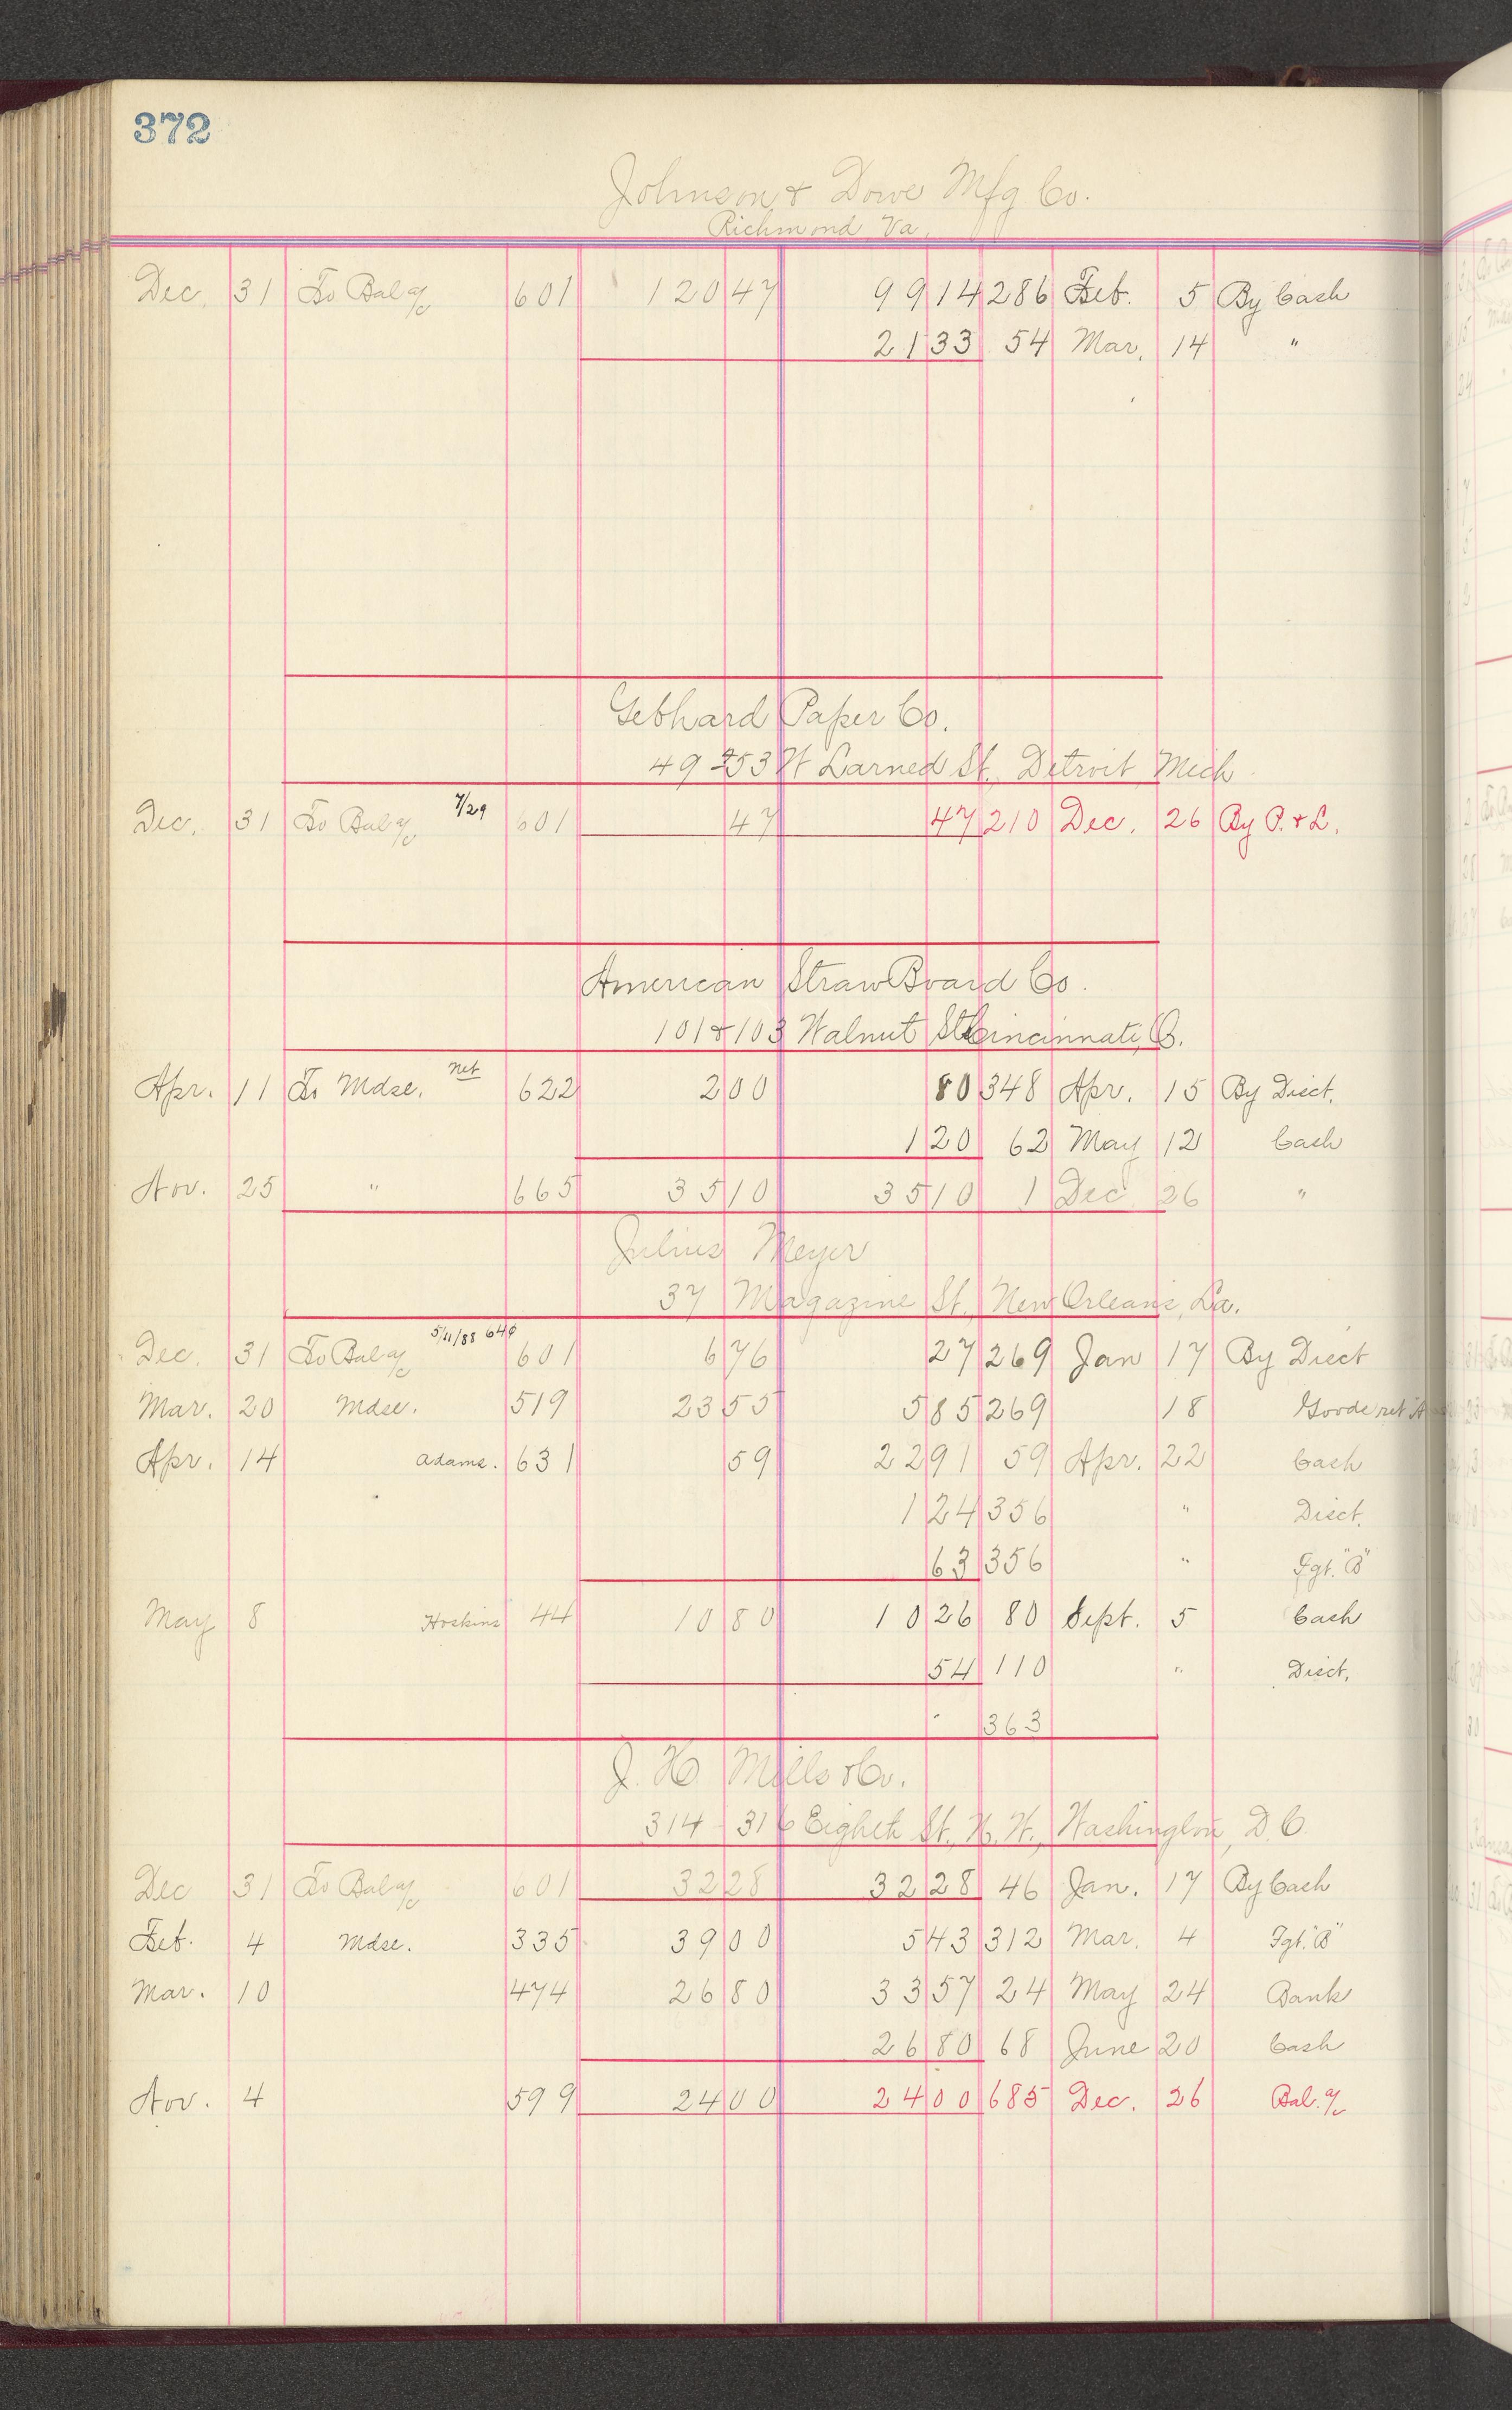 372
Johnson & Dowe Mfg Co.
Richmond Va.
Dec. 31 To Bal a/c 601 120 47 99 14 286 Feb. 5 By Cash
21 33 54 Mar. 14 "
Gebhard Paper Co.
49 & 53 W Larned St. Detroit Mich
Dec. 31 To Bal a/c 7/29 601 47 47 210 Dec. 26 By P. & L.
American StrawBoard Co.
101 & 103 Walnut St Cincinnati, O.
Apr. 11 To Mdse. Net 622 2 00 80 348 Apr. 15 By Disct.
1 20 62 May 12 Cash
Nov. 25 " 665 35 10 35 10 1 Dec 26 "
Julius Meyer
37 Magazine St., New Orleans, La.
Dec. 31 To Bal a/c 5/11/88 640 601 6 76 27 269 Jan 17 By Disct
Mar. 20 Mdse. 519 23 55 5 85 269 18 Goods ret
Apr. 14 Adams. 631 59 22 91 59 Apr. 22 Cash
1 24 356 " Disct.
63 356 " Fgt. "B"
May 8 Hoskins 44 10 80 10 26 80 Sept. 5 Cash
54 110 " Disct.
363
J. H. Mills & Co.
314 - 316 Eighth St. N. W., Washington, D.C.
Dec 31 To Bal a/c 601 32 28 32 28 46 Jan. 17 By Cash
Feb. 4 Mdse. 335 39 00 5 43 312 Mar. 4 Fgt. "B"
Mar. 10 474 26 80 33 57 24 May 24 Bank
26 80 68 June 20 Cash
Nov. 4 599 24 00 24 00 685 Dec. 26 Bal. a/c